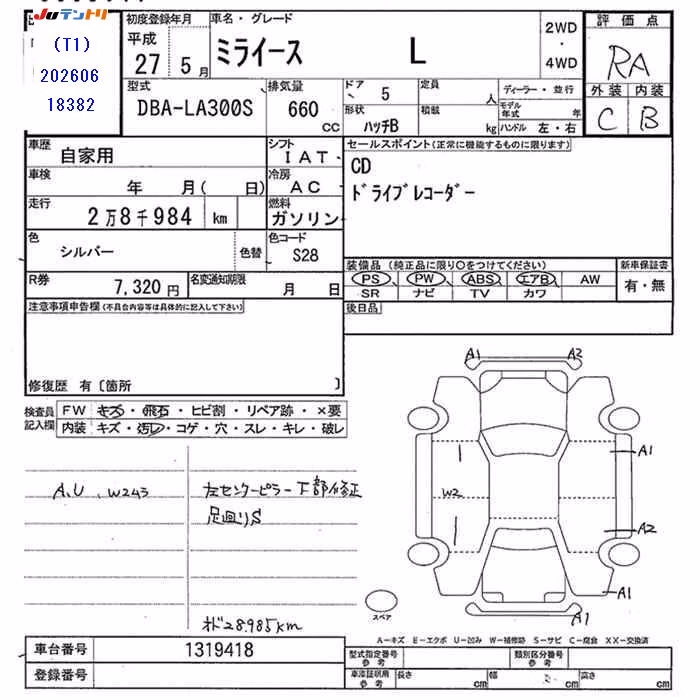 JUテントリ
(T1)
202606
18382
初度登録年月
平成
27 5月
車名・グレード
ミライース L
2WD
・
4WD
評価点
RA
外装 内装
C B
型式
DBA-LA300S
排気量
660
CC
ドア 5
形状
ハッチB
定員
人
積載
kg
ディーラー・並行
モデル年式 年
ハンドル 左・右
車歴
自家用
シフト
IAT
車検
年 月( 日)
冷房
AC
走行
2万8千984 km
燃料
ガソリン
色
シルバー
色替
色コード
S28
R券
7,320円
名変通知期限
月 日
セールスポイント(正常に機能するものに限ります)
CD
ドライブレコーダー
装備品 (純正品に限り○をつけてください)
PS PW ABS エアB AW
SR ナビ TV カワ
新車保証書
有・無
後日品
注意事項申告欄(不具合内容等は具体的に記入して下さい)
修復歴 有〔箇所 〕
検査員
記入欄
FW キズ・飛石・ヒビ割・リペア跡・×要
内装 キズ・汚レ・コゲ・穴・スレ・キレ・破レ
A.U W243
左センターピラー下部修正
足廻りS
オド28985km
A1 A2
A1
W2
A2
A1
A1
スペア
A-キズ E-エクボ U-凹み W-補修跡 S-サビ C-腐食 XX-交換済
車台番号 1319418
登録番号
型式指定番号
参考
類別区分番号
参考
車庫証明用
参考
長さ cm
幅 cm
高さ cm